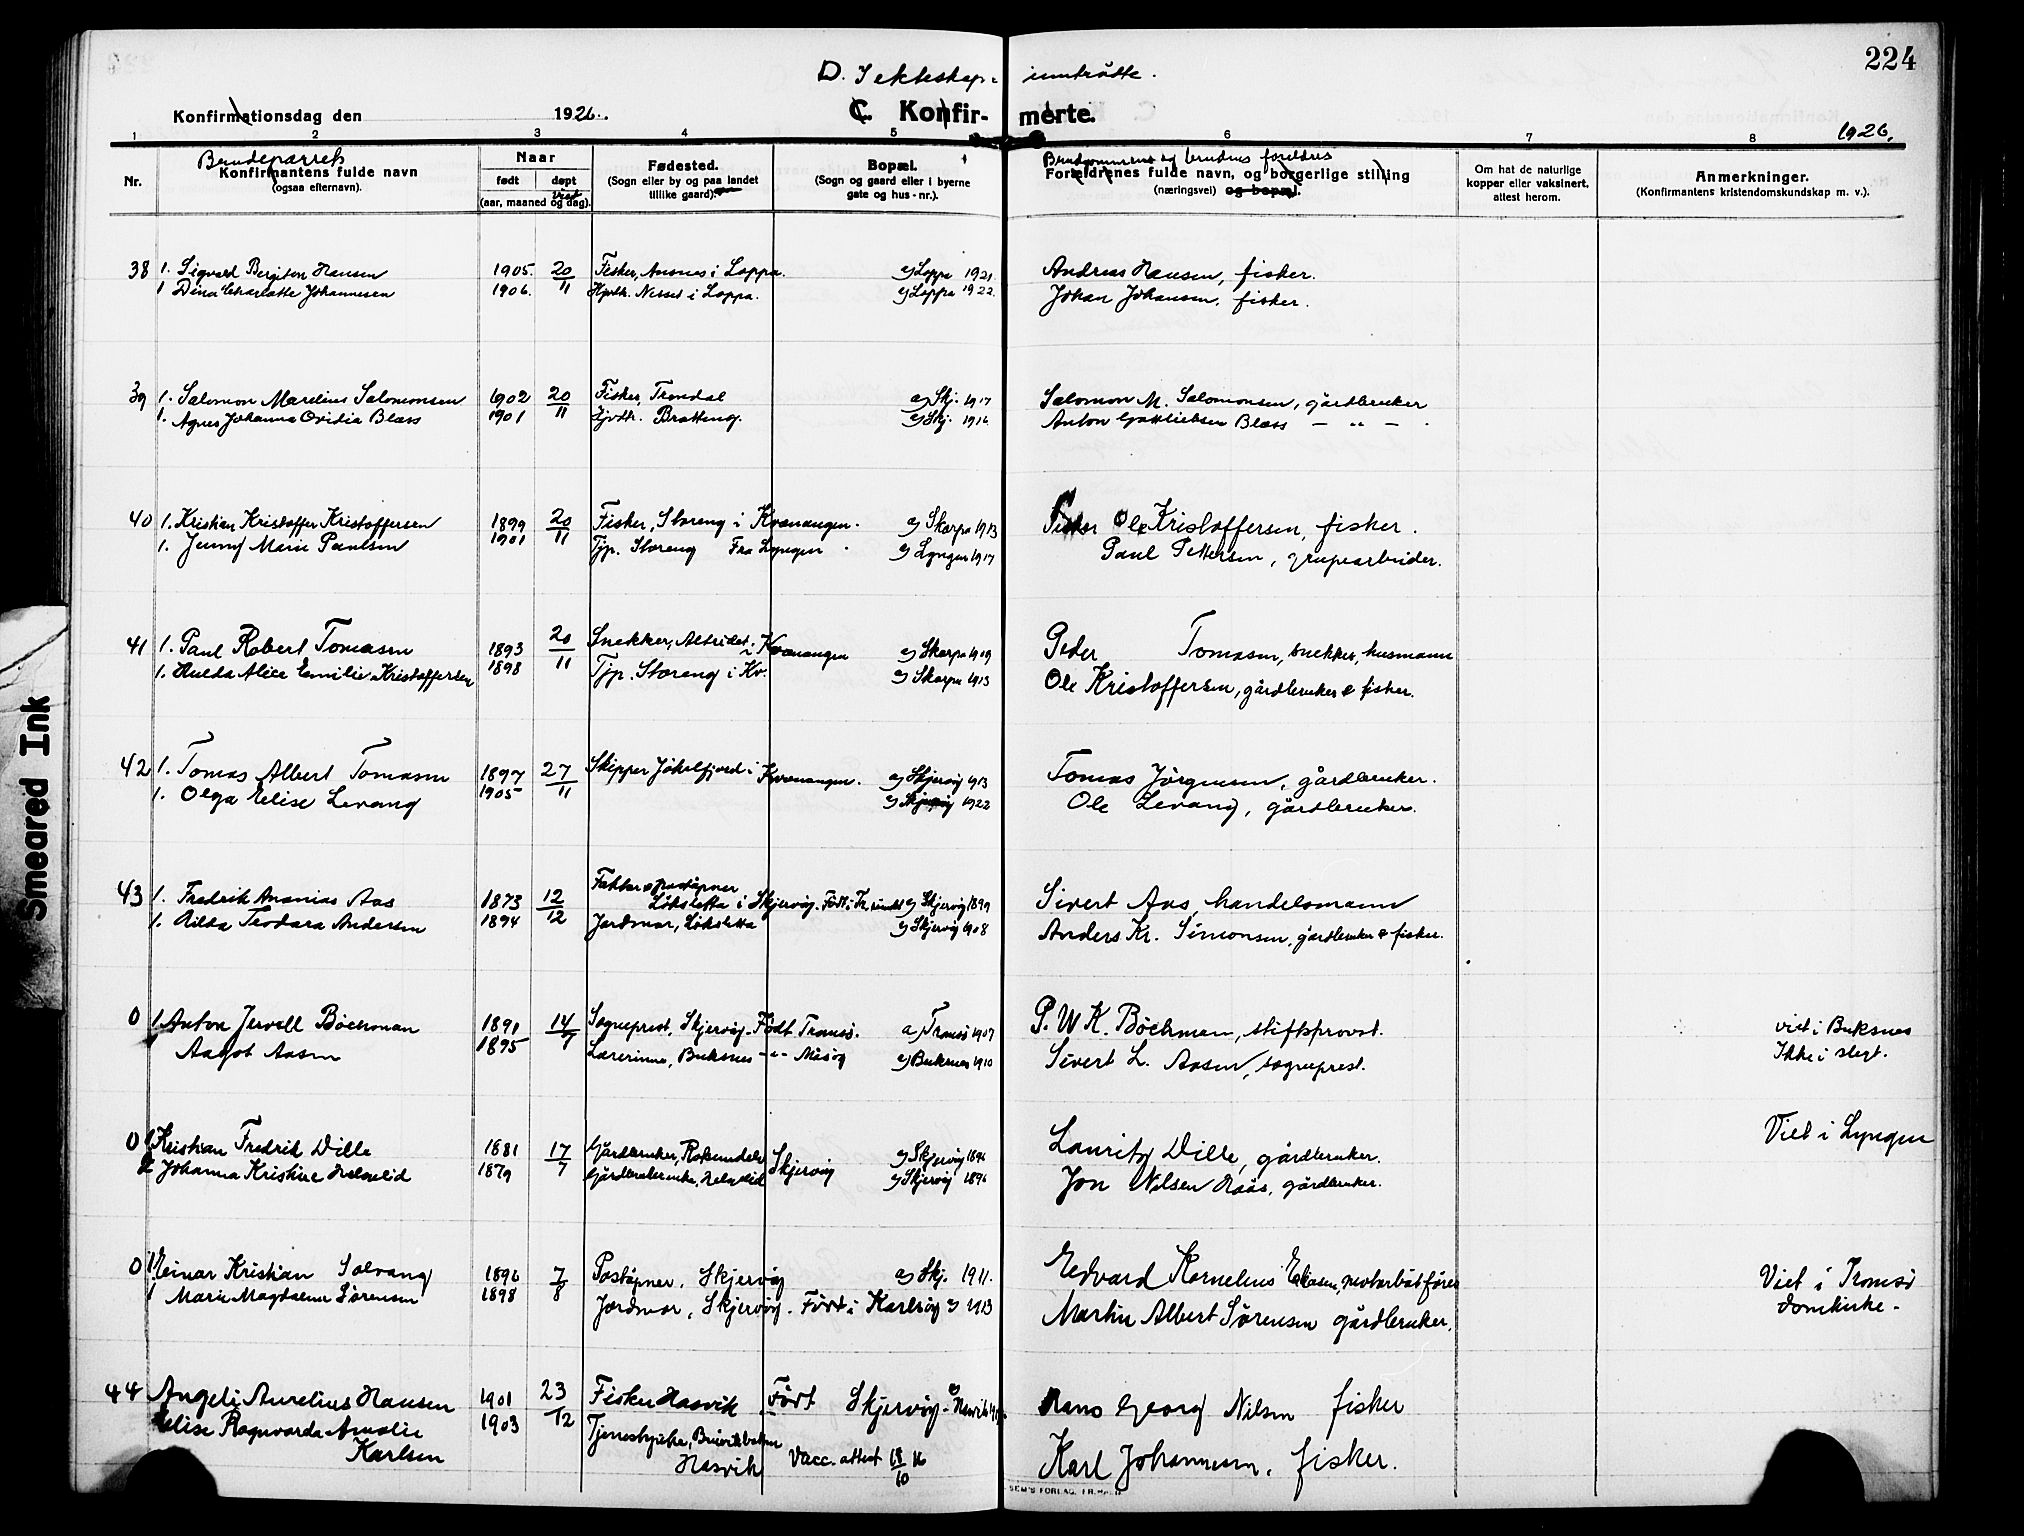 224
D. Ekteskap- inntrådte.
Konfirmationsdag den 1926. C. Konfir- merte.
1 2 3 4 5 6 7 8 1926.
Nr.
Brudeparrets
Konfirmantens fulde navn
(ogsaa efternavn).
Naar
født døpt
viet
(aar, maaned og dag).
Fødested.
(Sogn eller by og paa landet
tillike gaard).
Bopæl.
(Sogn og gaard eller i byerne
gate og hus-nr.).
Brudgommens og brudens foreldres
Forældrenes fulde navn, og borgerlige stilling
(næringsvei) og bopæl.
Om hat de naturlige
kopper eller vaksinert,
attest herom.
Anmerkninger.
(Konfirmantens kristendomskundskap m. v.).
38 1. Sigvard Bergiton Hansen 1905. 20/11 Fisker, Ansnes i Loppa. a) Loppa 1921 Andreas Hansen, fisker.
1 Dina Charlotte Johannesen 1906. Hjvtr. Nesset i Loppa. b) Loppa 1922. Johan Johansen, fisker.
39 1. Salomon Marelius Salomonsen 1902 20/11 Fisker, Trondal a) Skj. 1917 Salomon M. Salomonsen, gårdbruker
1. Agnes Johanna Ovidia Blæss 1901 Hjvtr. Bratteng. b) Skj. 1916 Anton Gottliebsen Blæss — " — .
40 1. Kristian Kristoffer Kristoffersen 1899 20/11 Fisker, Storeng i Kvænangen. a) Skorpa 1913 Ole Kristoffersen, fisker.
1. Jenny Marie Paulsen 1901 Tjp. Storeng Fra Lyngen. b) Lyngen 1917 Paul Pettersen, grupearbeider.
41 1. Paul Robert Tomasen 1893 20/11 Snekker, Alteidet i Kvænangen a) Skorpa 1909 Peder Tomasen, snekker, husmann
1. Hulda Alice Emilie Kristoffersen 1898 Tjp. Storeng i Kv. b) Skorpa 1913 Ole Kristoffersen, gårdbruker & fisker.
42 1. Tomas Albert Tomasen 1897 27/11 Skipper Jøkelfjord i Kvænangen. a) Skjervøy 1913 Tomas Jørgensen, gårdbruker.
1. Olga Elise Levang 1905 b) Skjervøy 1922 Ole Levang, gårdbruker.
43 1. Fredrik Ananias Aas 1873 12/12 Faktor & poståpner
Løksletta i Skjervøy. Født i Kr.sund a) Skjervøy 1899 Sivert Aas, handelsmann
1. Hilda Teodora Andersen 1894 Jordmor, Løksletta b) Skjervøy 1908 Anders Kr. Simonsen, gårdbruker & fisker.
0 1. Anton Jervell Böckman 1891 14/7 Sogneprest, Skjervøy. Født Tromsø. a) Tromsø 1907 P. W. K. Böckman, stiftsprovst. viet i Buksnes
Aagot Aasen 1895 Lærerinne, Buksnes — " — Måsøy b) Buksnes 1910 Sivert L. Aasen, sogneprest. Ikke i slegt.
0 1 Kristian Fredrik Dille 1881 17/7 Gårdbruker, Rotsundelv Skjervøy a) Skjervøy 1896 Lauritz Dille, gårdbruker. Viet i Lyngen
2 Johanna Kristine 1879 Gårdbrukerenke, b) Skjervøy 1896 Jon Nilsen, gårdbruker.
0 1 Einar Kristian Solvang 1896 7/8 Poståpner, Skjervøy a) Skj. 1911. Edvard Kornelius Eliasen, motorbåtfører Viet i Tromsø
1 Marie Magdalene Sørensen 1898 Jordmor, Skjervøy. Født i Karlsøy b) 1913 Martin Albert Sørensen gårdbruker. domkirke.
44 Angeli Aurelius Hansen 1901 23/12 Fisker Hasvik Født Skjervøy - Hasvik Hans Georg Nilsen fisker
Elise Ragnvarda Amalie
Karlsen 1903 Tjenestepike, Breivikbotn
Hasvik Vacc. attest 18/10 16 Karl Johannesen, fisker.
SEM'S FORLAG, FR.HALD
Smeared Ink